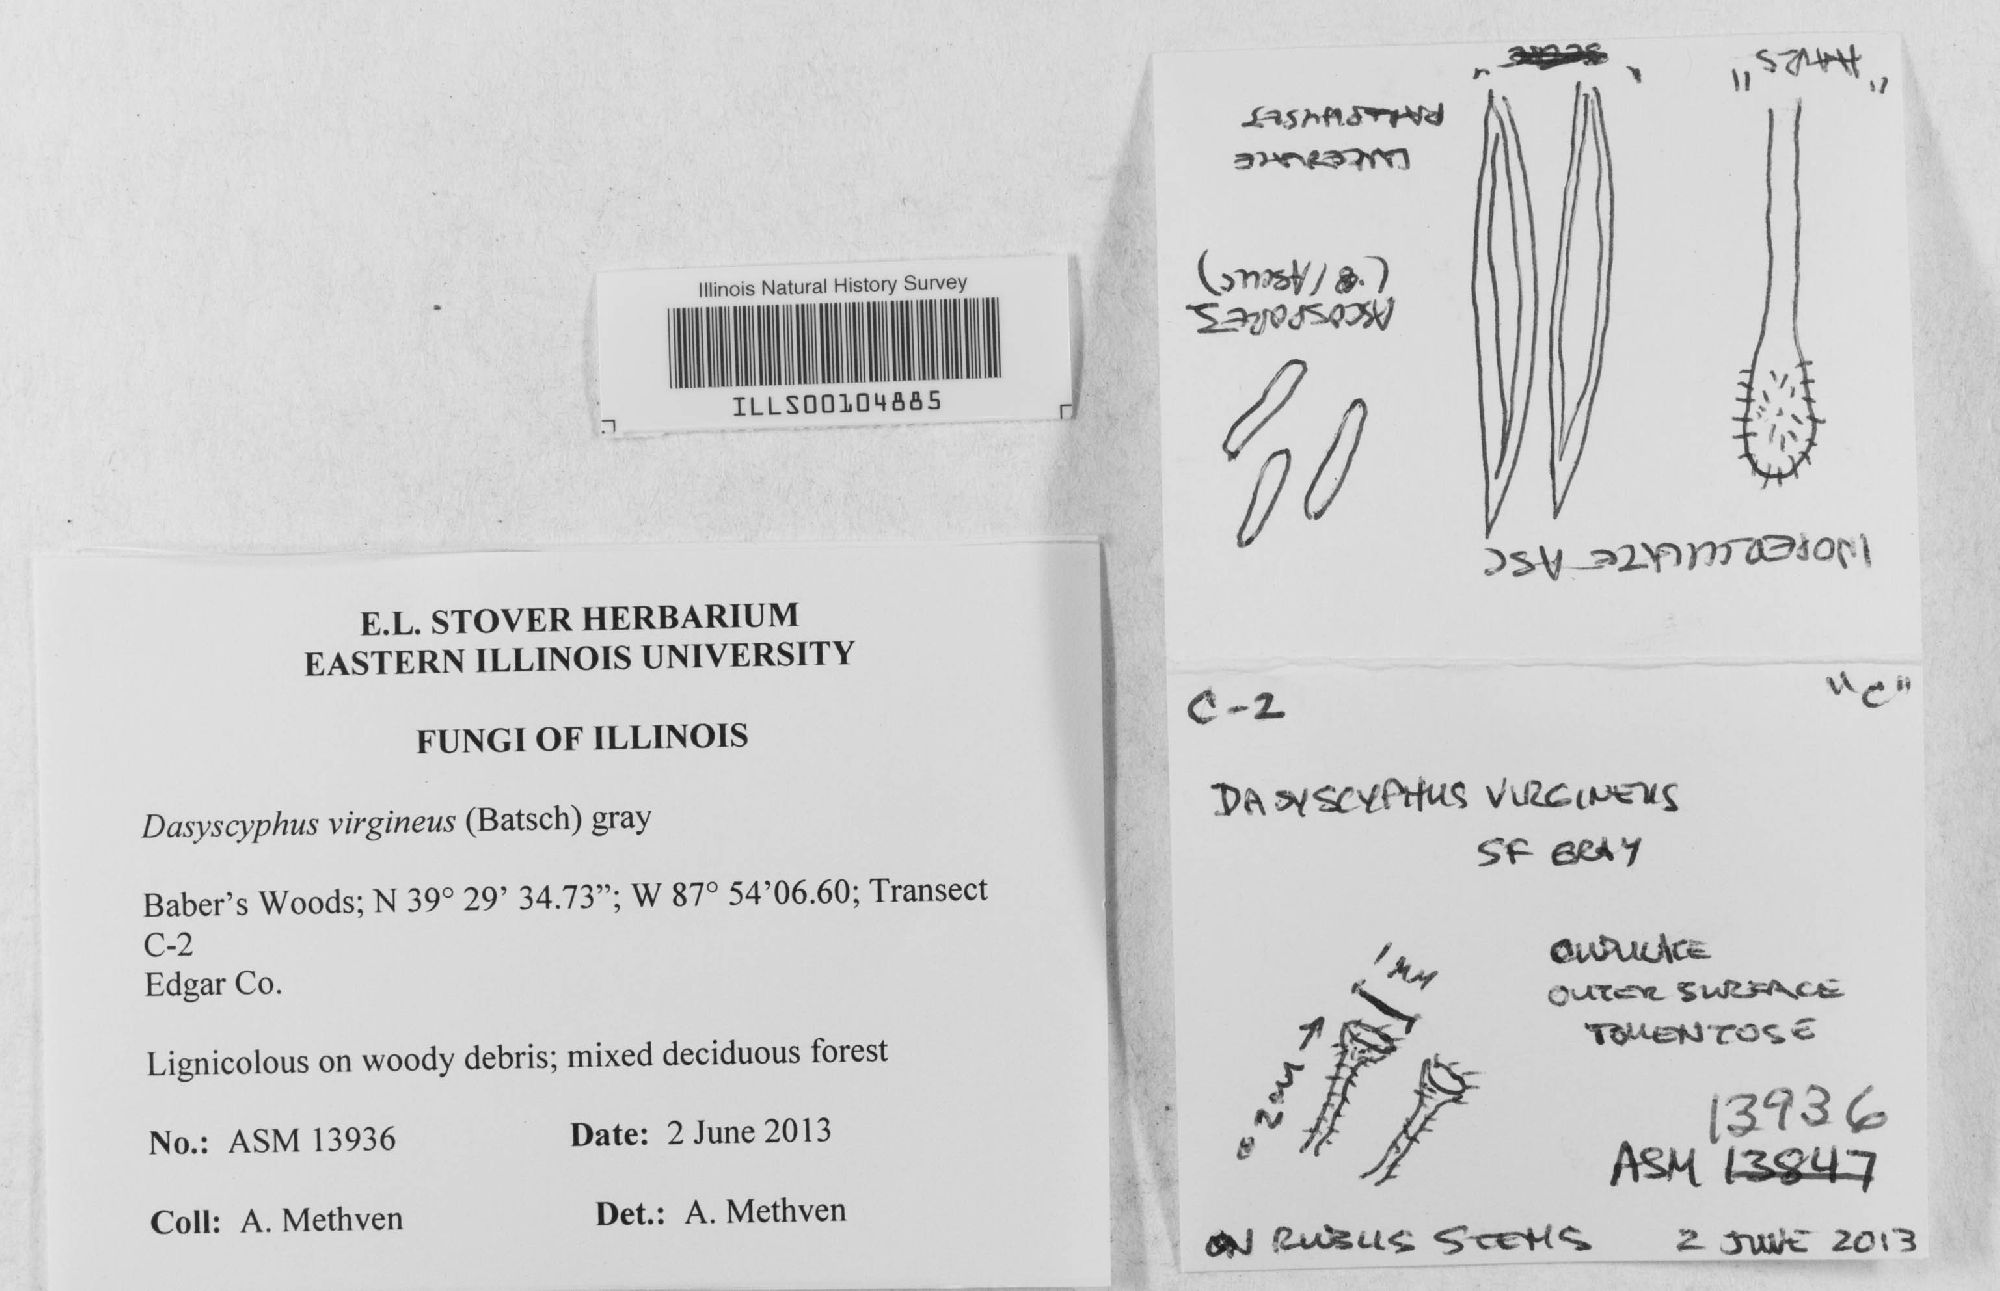 Illinois Natural History Survey
ILLS00104885
E.L. STOVER HERBARIUM
EASTERN ILLINOIS UNIVERSITY
FUNGI OF ILLINOIS
Dasyscyphus virgineus (Batsch) gray
Baber's Woods; N 39° 29' 34.73”; W 87° 54'06.60; Transect
C-2
Edgar Co.
Lignicolous on woody debris; mixed deciduous forest
No.: ASM 13936 Date: 2 June 2013
Coll: A. Methven Det.: A. Methven
INOPERCULATE ASC
"HAIRS"
ASCOSPORES
(8/ASCUS)
LANCEOLATE
PARAPHYSES
C-2 "C"
DASYSCYPHUS VIRGINEUS
SF GRAY
1 MM
2 MM
OUTER SURFACE
TOMENTOSE
13936
ASM 13847
ON RUBUS STEMS 2 JUNE 2013